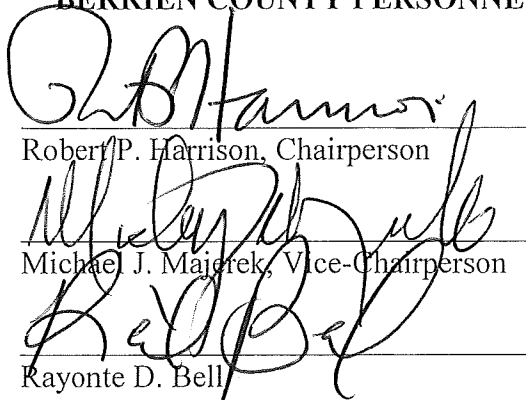 BERRIEN COUNTY PERSONNE
Robert P. Harrison, Chairperson
Michael J. Majerek, Vice-Chairperson
Rayonte D. Bell